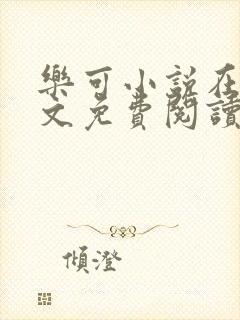 樂可小説在
文免費閱讀
傾澄